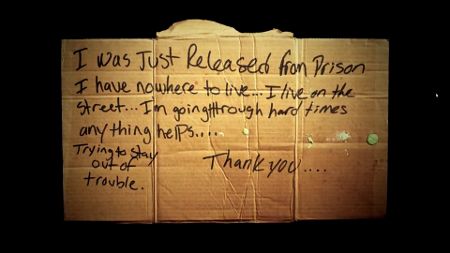 I was Just Released from Prison
I have nowhere to live... I live on the
street... I'm going through hard times
anything helps.....
Trying to stay
out of
trouble.
Thank you....